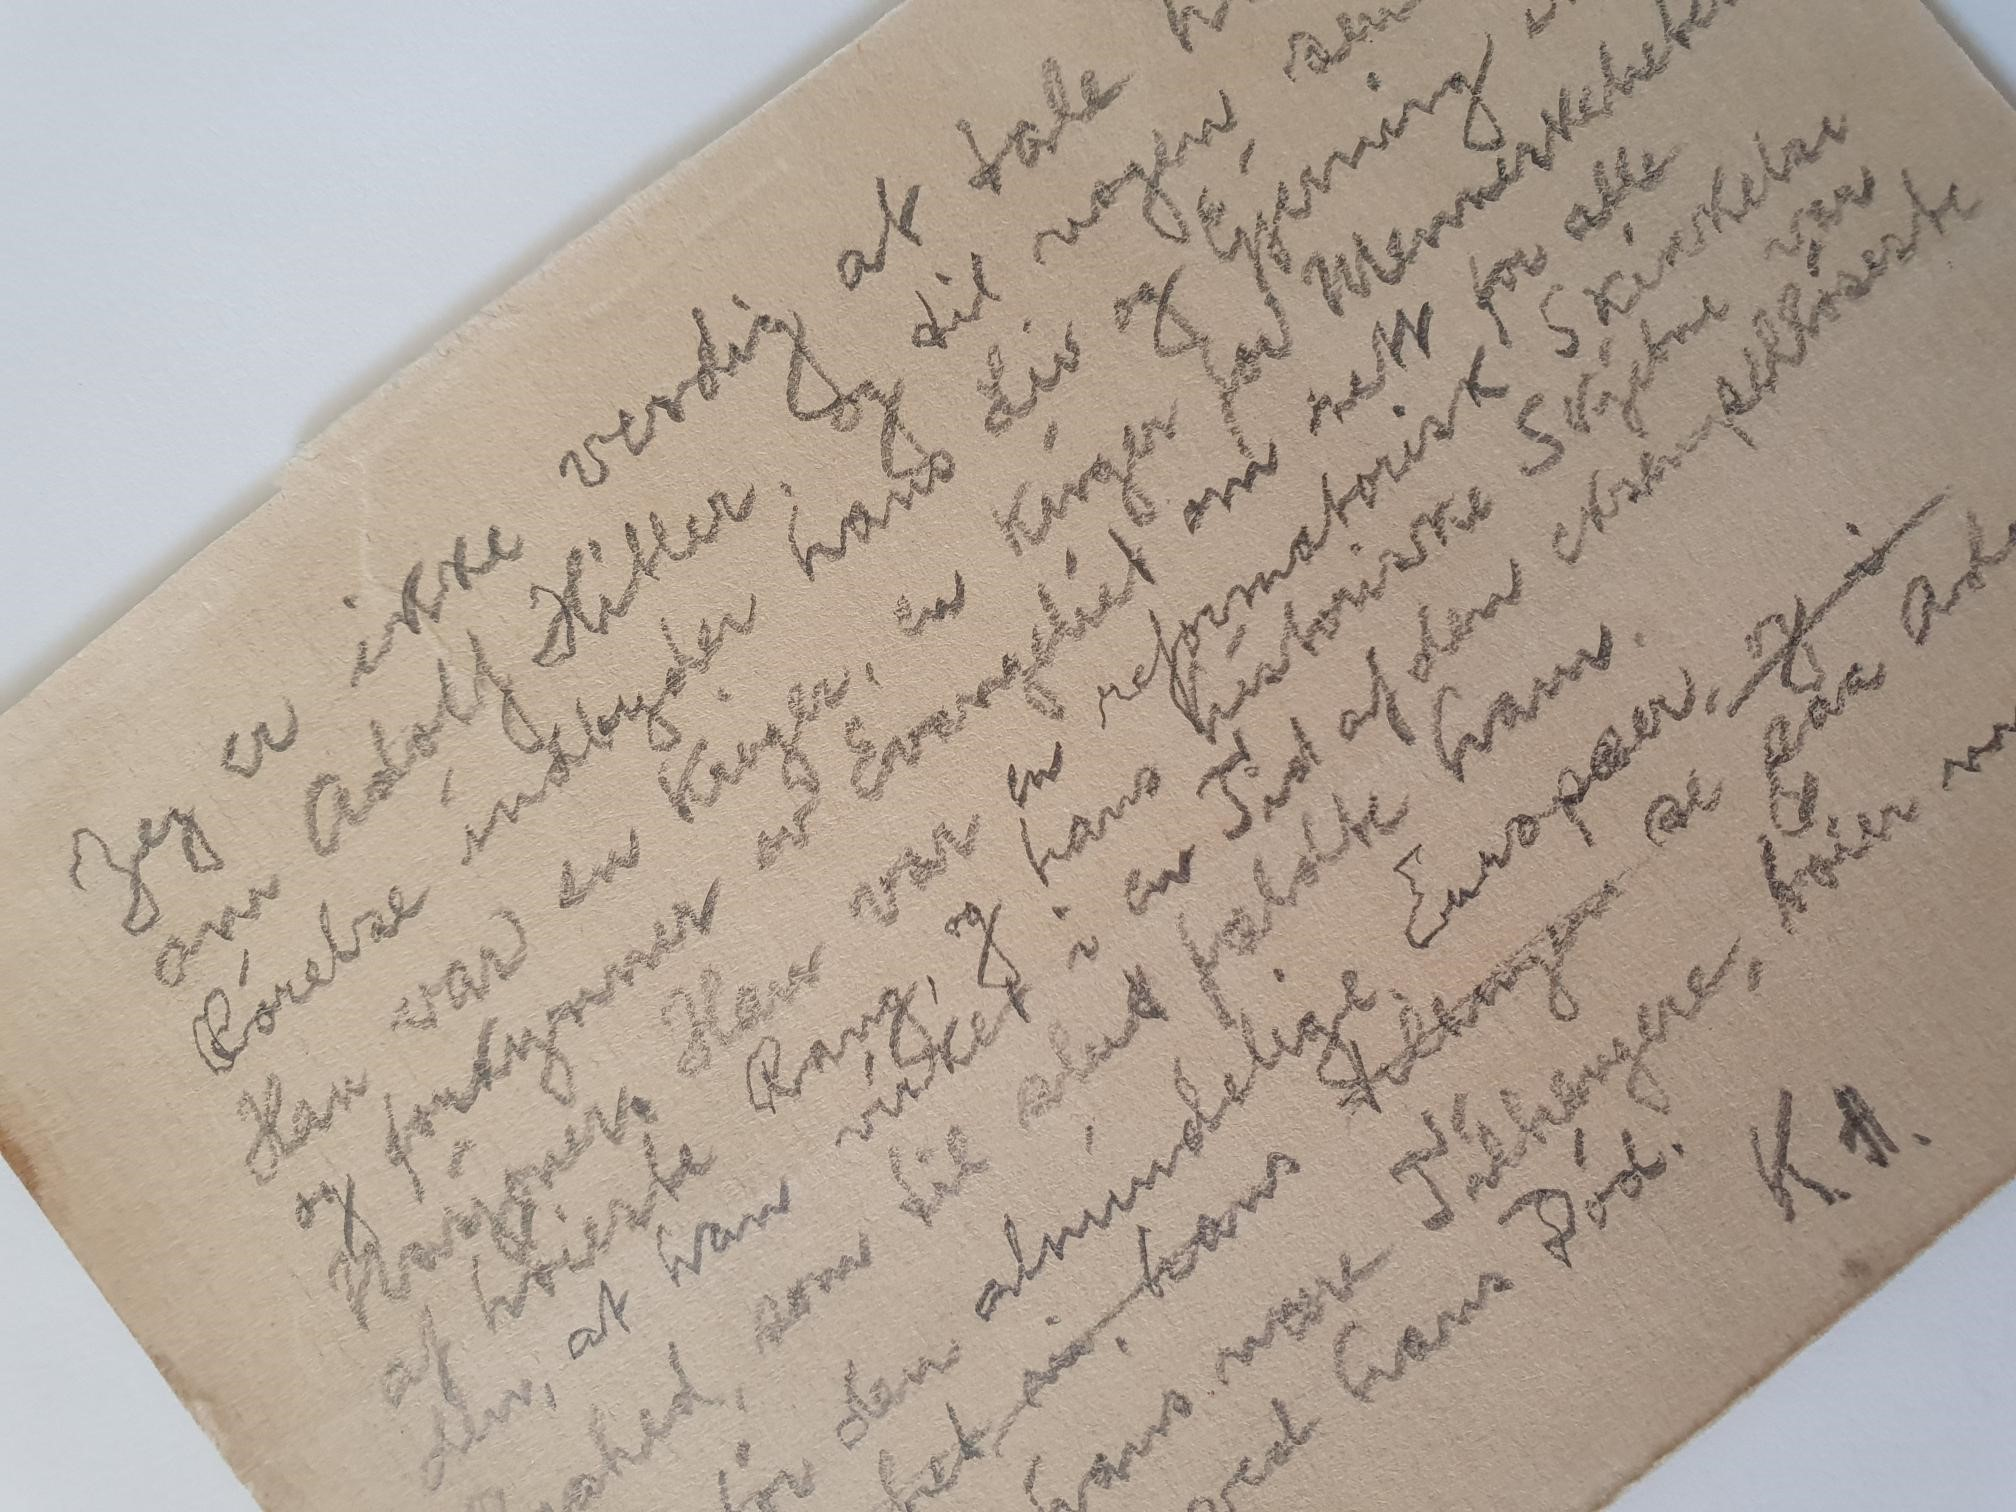 Jeg er ikke verdig at tale
om Adolf Hitler, og til nogen
Rørelse indbyder hans Liv og Gjerning
Han var en Kriger, en Kriger for Menneskeheten
og forkynner av Evangeliet om rett for alle
Nasjoner. Han var en reformatorisk Skikkelse
af høieste Rang, og hans historiske Skjebne var
den, at han virket i en Tid af den eksempelløseste
som til slut fældte ham.
den almindelige Europæer, og i
vi, hans Tilhenger se paa
hans nære Tilhengere, bøier
ved hans Død.
K.H.